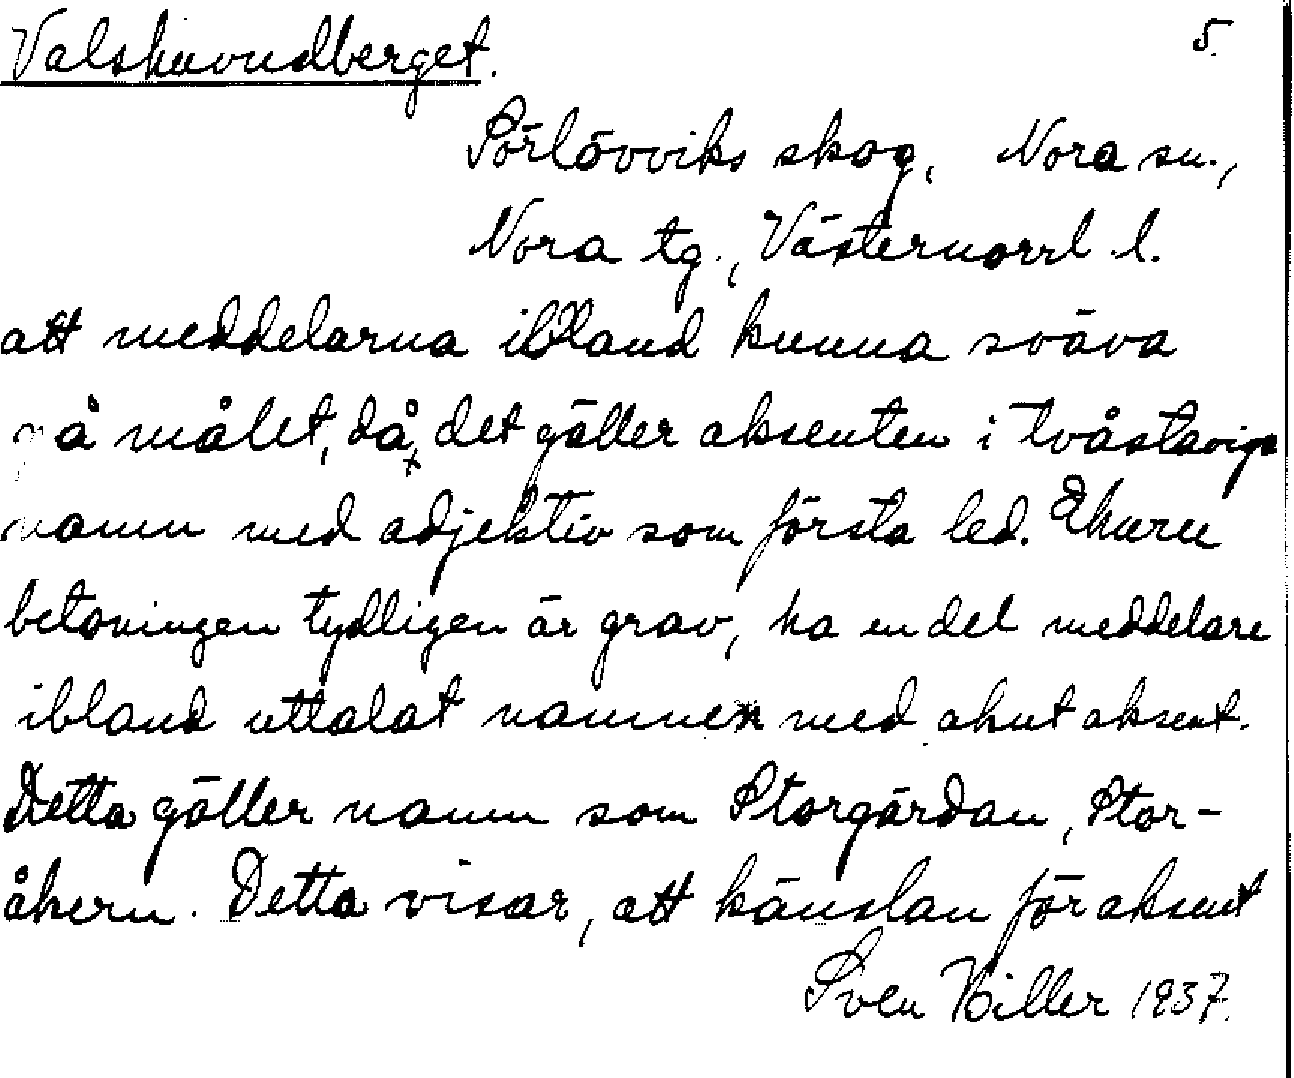 Valshuvudberget. 5.
Sörlövviks skog, Nora sn.,
Nora tg., Västernorrl. l.
att meddelarna ibland kunna sväva
på målet, då det gäller aksenten i tvåstaviga
namn med adjektiv som första led. Ehuru
betoningen tydligen är grav, ha en del meddelare
ibland uttalat namnen med akut aksent.
Detta gäller namn som Storgärdan, Stor-
åkern. Detta visar, att känslan för aksent
Sven Hiller 1937.